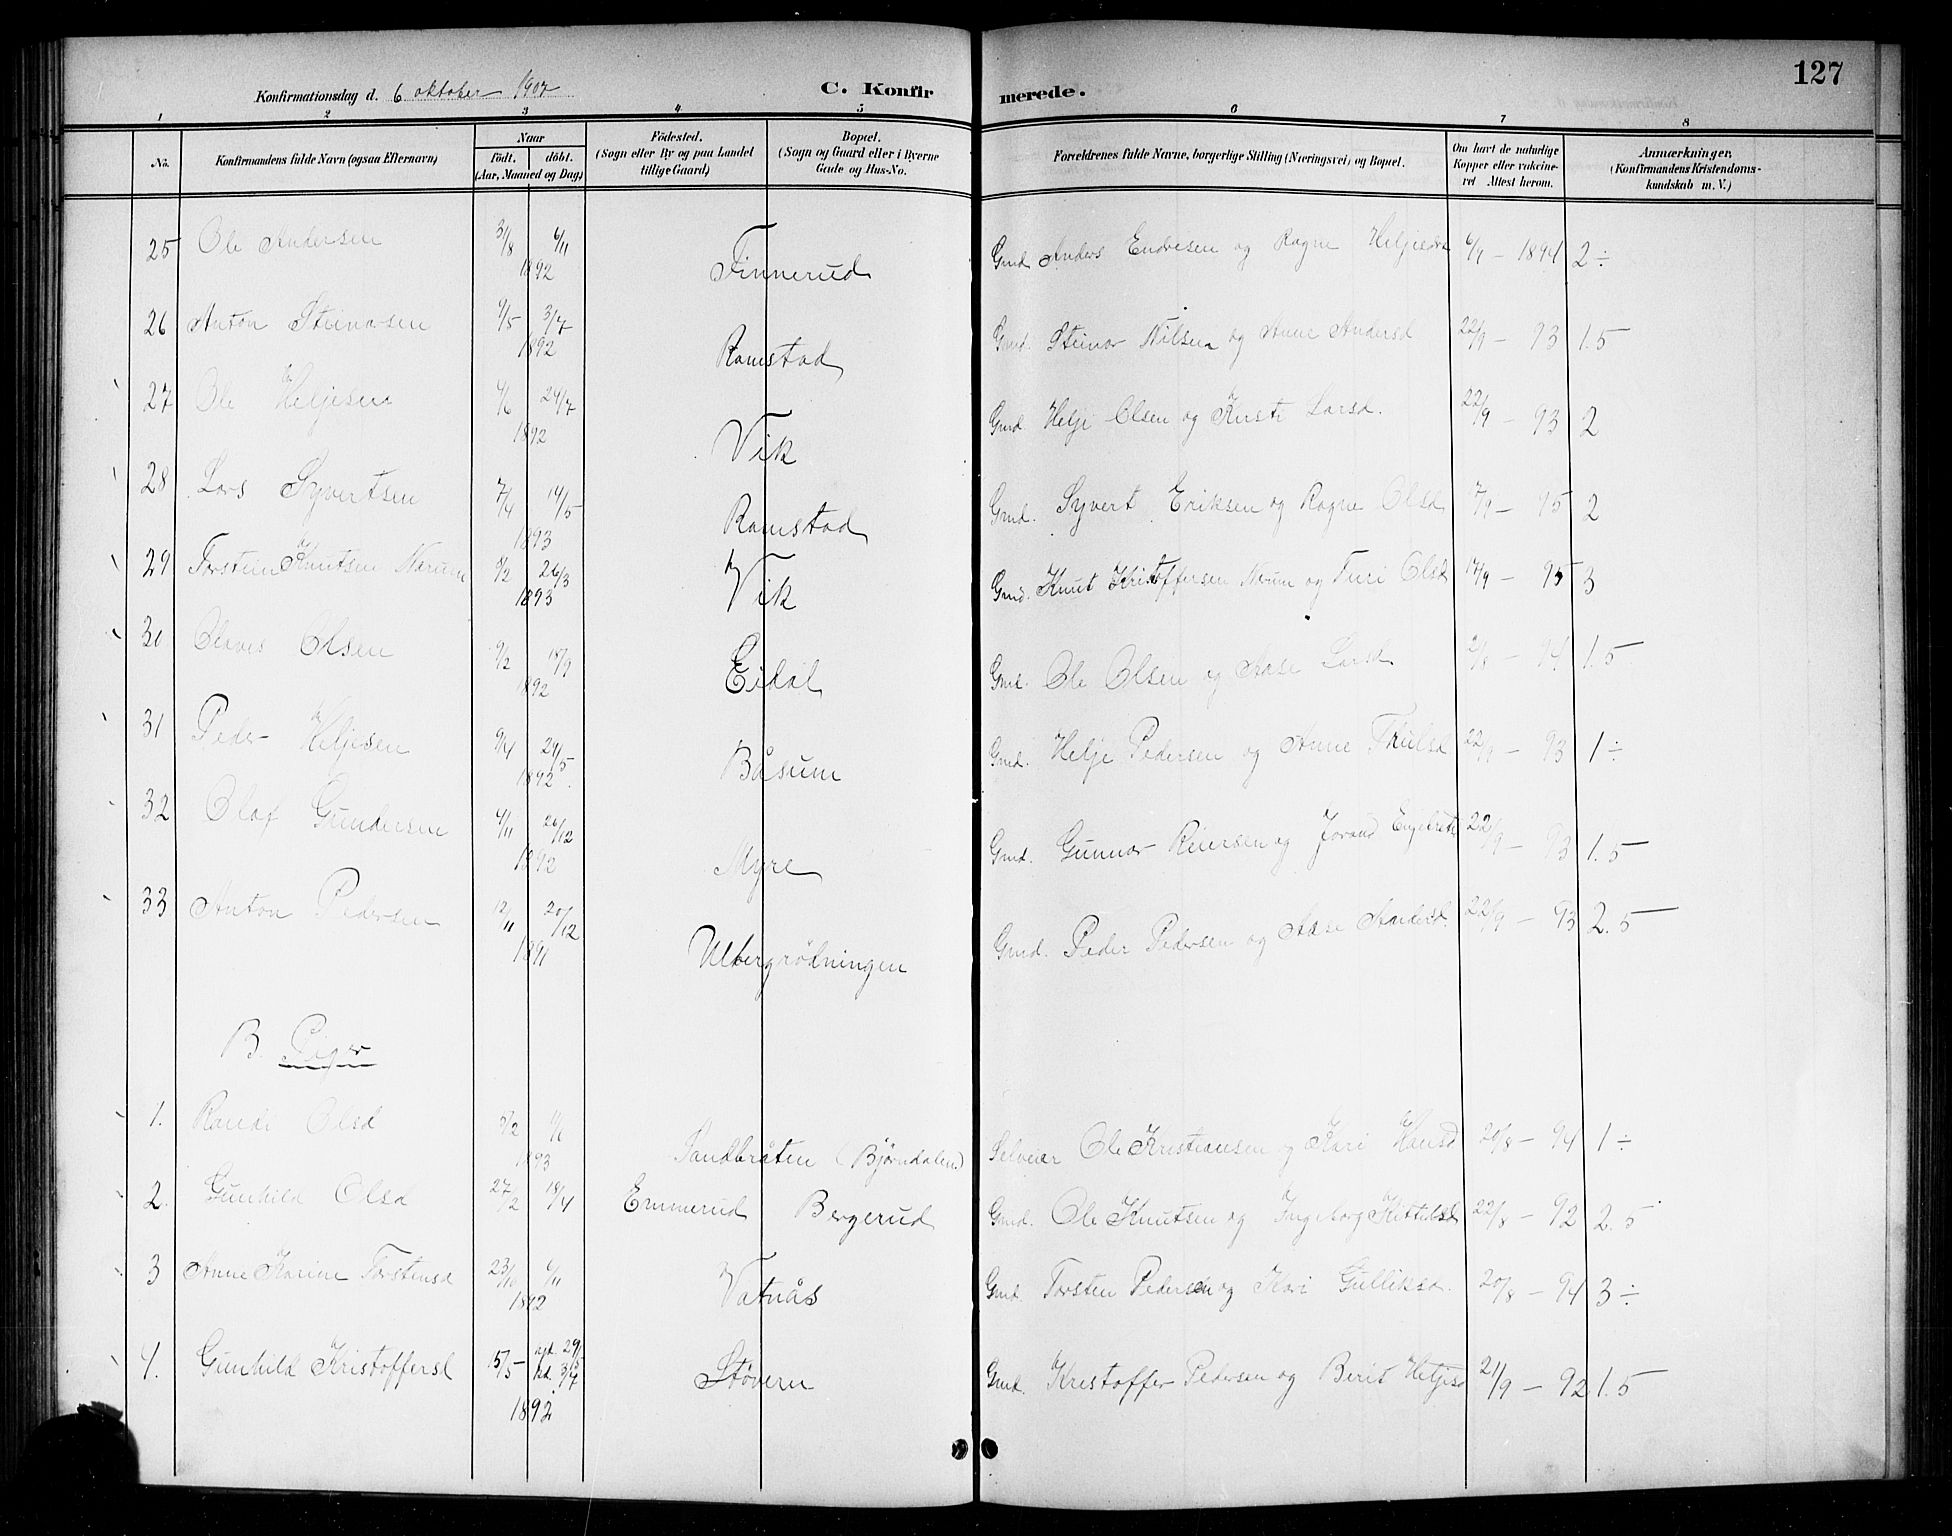 127
Konfirmationsdag d. 6 oktober 1907
C. Konfirmerede.
1 2 3 4 5 6 7 8
No. Konfirmandens fulde Navn (ogsaa Efternavn) Naar født. døbt. (Aar, Maaned og Dag) Födested. (Sogn eller By og paa Landet tillige Gaard) Bopæl. (Sogn og Gaard eller i Byerne Gade og Hus-No. Forældrenes fulde Navne, borgerlige Stilling (Næringsvei) og Bopæl. Om havt de naturlige Kopper eller vakcineret Attest herom. Anmærkninger, (Konfirmandens Kristendomskundskab m. V.)
25 Ole Andersen 3/8 6/11 1892 Finnerud Gmd. Anders Endresen og Ragne Heljesd 6/9 - 1894 2 ÷
26 Anton Steinarsen 9/5 3/7 1892 Ramstad Gmd. Steinar Nilsen og Anne Andersd 22/9 - 93 1.5
27 Ole Heljesen 4/6 24/7 1892 Vik Gmd. Helje Olsen og Kirsti Larsd. 22/9 - 93 2
28 Lars Syvertsen 7/4 14/5 1893 Ramstad Gmd. Syvert Eriksen og Ragne Olsd 7/9 - 95 2
29 Torstein Knutsen Nærum 8/2 26/3 1893 Vik Gmd. Knut Kristoffersen Nerum og Turi Olsd 17/9 - 95 3
30 Olsen 9/2 18/9 1892 Eidal Gmd. Ole Olsen og Aase Larsd 2/8 - 94 1.5
31 Peder Heljesen 9/4 29/5 1892 Båsum Gmd. Helje Pedersen og Anne Trulsd 22/9 - 93 1 ÷
32 Olaf Gundersen 4/11 26/12 1892 Myre Gmd. Gunnar Reiersen og Jorand Engebretsd 22/9 - 93 1.5
33 Anton Pedersen 12/11 20/12 1891 Ulbergrödningen Gmd. Peder Pedersen og Aase Andersd. 22/9 - 93 2.5
B. Piger
1. Randi Olsd 5/2 1893 Sandbråten (Bjørndalen) Selveier Ole Kristiansen og Kari Hansd 20/8 - 94 1 ÷
2. Gunhild Olsd 27/2 18/4 Emmerud Bergerud Gmd. Ole Knutsen og Ingeborg Kittilsd 22/8 - 92 2.5
3 Anne Karine Torstensd 23/10 6/11 1892 Vatnås Gmd. Torsten Pedersen og Kari Gulliksd. 20/8 - 94 3 ÷
4. Gunhild Kristoffersd 15/5 - hjd. 29/5 kd. 3/7 1892 Støvern Gmd. Kristoffer Pedersen og Berit Heljesd 21/9 - 92 1.5